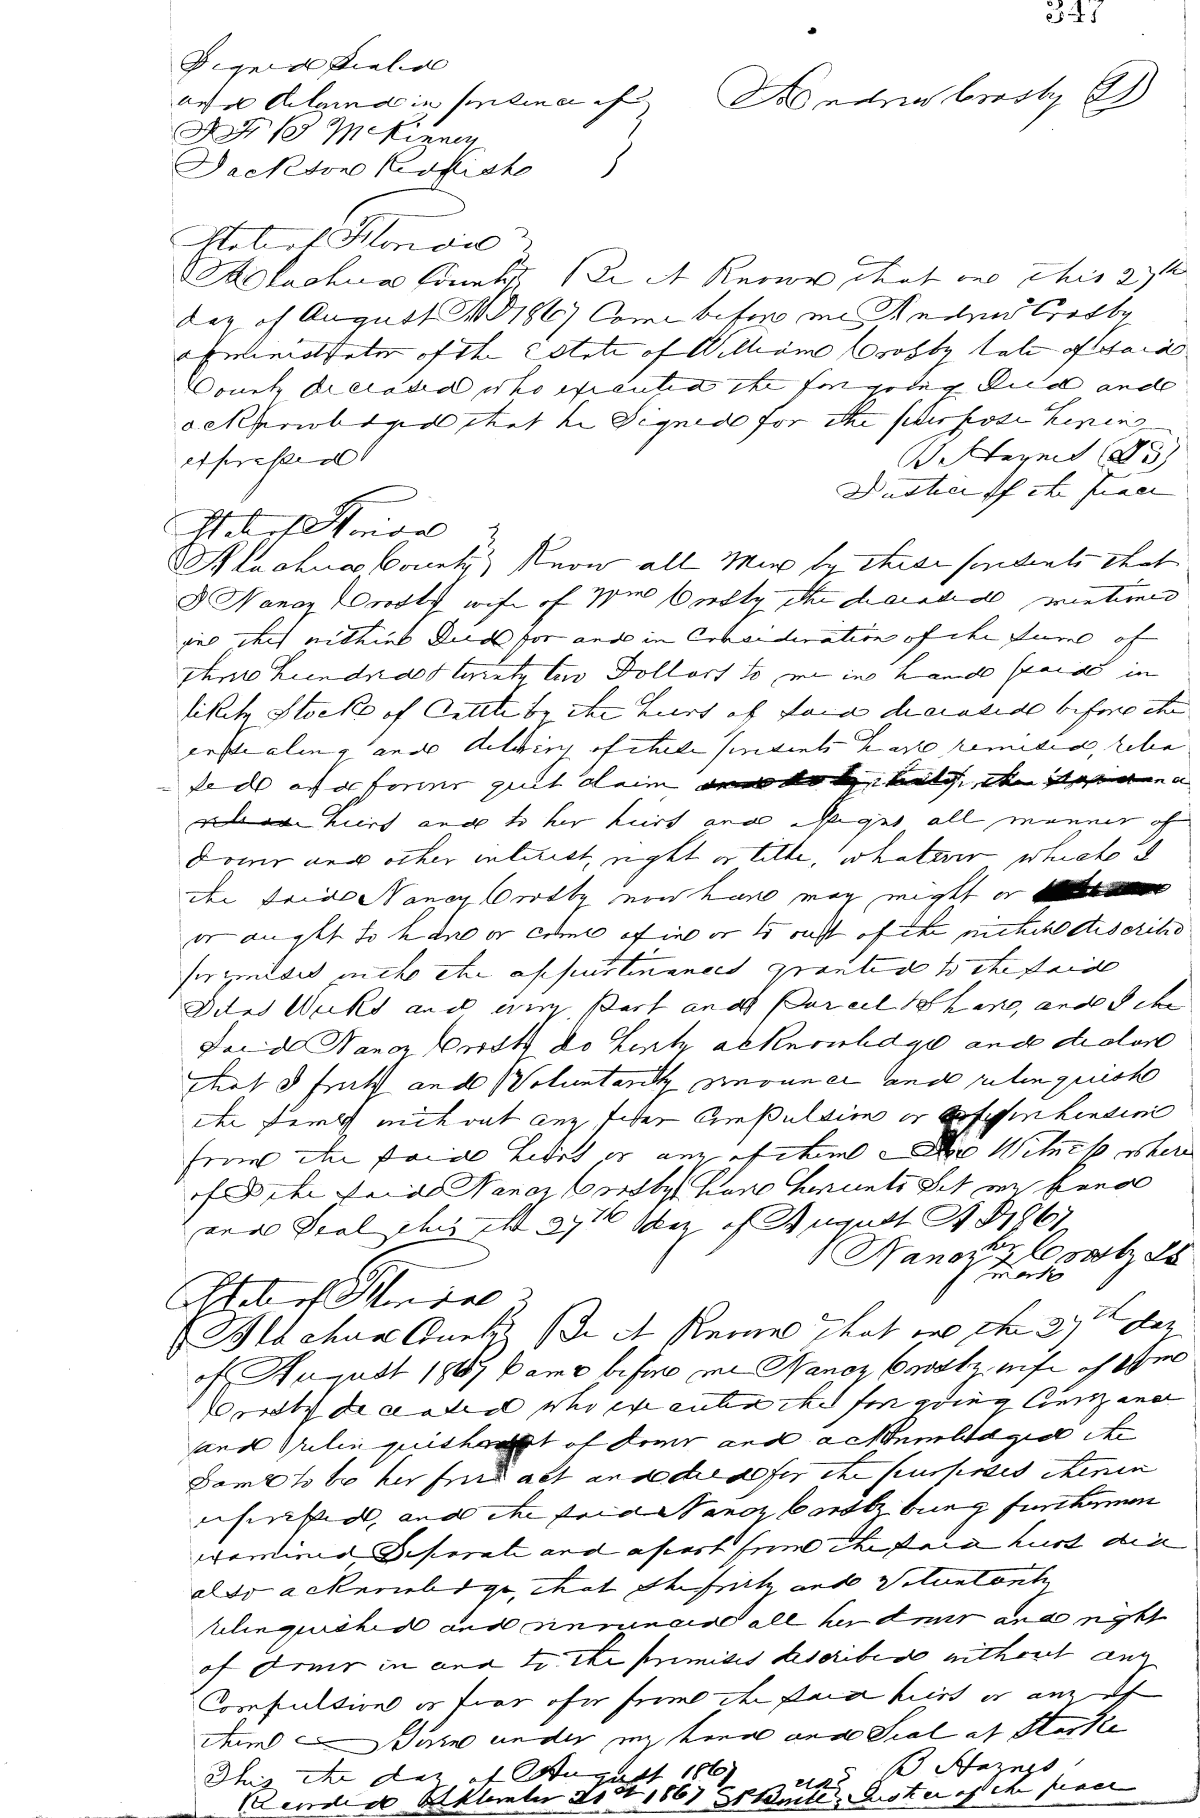 347
Signed Sealed
and delivered in presence of } Andrew Crosby (LS)
McKinney
Jackson Redfish
State of Florida }
Alachua County } Be it Known that on this 27th
day of August AD 1867 Came before me Andrew Crosby
administrator of the Estate of William Crosby late of said
County deceased who executed the forgoing Deed and
acknowledged that he Signed for the purpose herein
expressed
B Haynes (LS)
Justice of the peace
State of Florida }
Alachua County } Know all Men by these presents that
I Nancy Crosby wife of Wm Crosby the deceased mentioned
in the within Deed for and in Consideration of the Sum of
three hundred & twenty two Dollars to me in hand paid in
likely Stock of Cattle by the heirs of said deceased before the
ensealing and delivery of these presents have remised, relea
sed and forever quit claim
heirs and to her heirs and assigns all manner of
dower and other interest, right or title, whatever which I
the said Nancy Crosby now have may might or
or aught to have or come of in or to out of the within described
premises with the appurtinances granted to the said
Silas Weeks and every Part and Parcel thare, and I the
said Nancy Crosby do herely acknowledge and declare
that I freely and Voluntarily renounce and relinquish
the Same without any fear Compulsion or apprehension
from the said heirs or any of them In Witness where
of I the said Nancy Crosby have hereunto Set my hand
and Seal this the 27th day of August AD 1867
Nancy her x mark Crosby LS
State of Florida }
Alachua County } Be it Known that on the 27th day
of August 1867 Came before me Nancy Crosby wife of Wm
Crosby deceased who executed the forgoing Conveyance
and relinquishment of dower and acknowledged the
Same to be her free act and deed for the purposes therein
expressed, and the said Nancy Crosby being furthermore
examined Separate and apart from the said heirs did
also acknowledge, that she freely and Voluntarily
relinquished and renounced all her dower and right
of dower in and to the premises described without any
Compulsion or fear of or from the said heirs or any of
them Given under my hand and Seal at Starke
This the day of August 1867 B Haynes
Recorded September 21st 1867 Justice of the peace